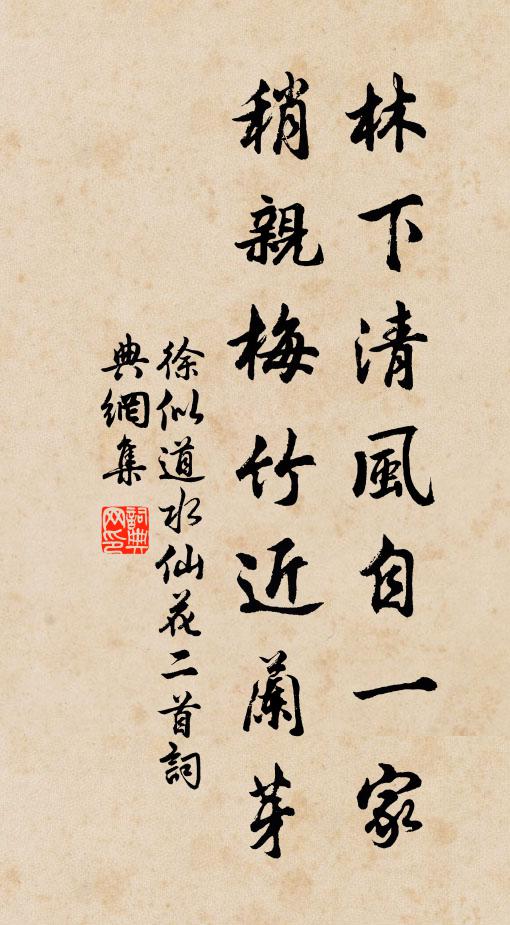 林下清風自一家
稍親梅竹近蘭芽
徐似道水仙花二首詞
典網集
詞典
网印